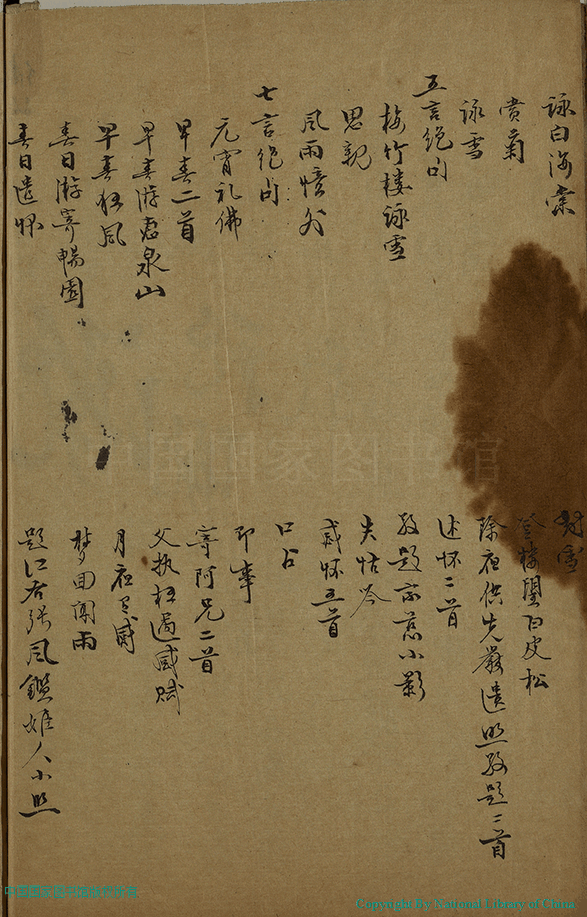 詠白海棠
賞菊
詠雪
五言絕句
梅竹樓詠雪
思親
風雨憶外
七言絕句
元宵礼佛
早春二首
早春游惠泉山
早春狂風
春日游寄暢園
春日遣怀
對雪
登樓望白皮松
除夜供先嚴遺照敬題二首
述怀二首
敬題家慈小影
失怙吟
感怀五首
口占
即事
寄阿兄二首
父執枉過感賦
月夜有感
梦回聞雨
題江右張風鑑姬人小照
中国国家图书馆
Copyright By National Library of China